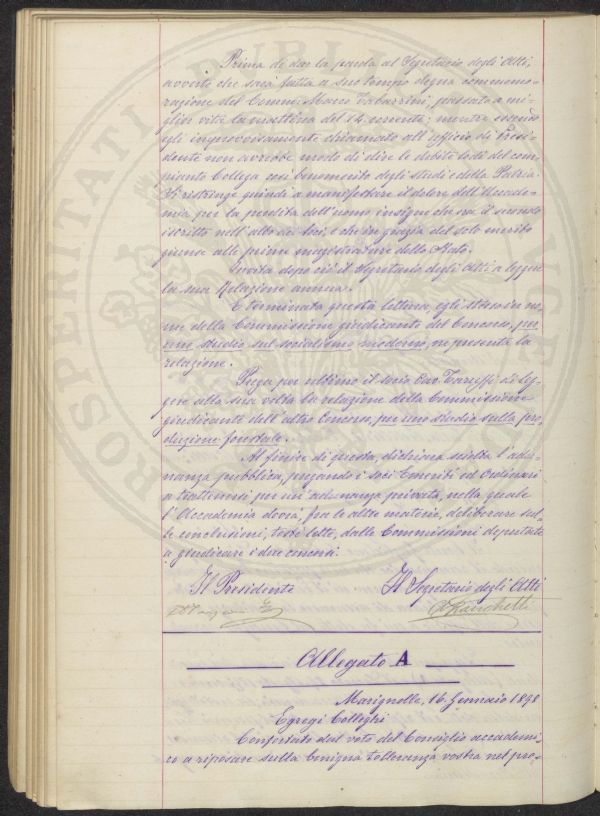 Prima di dar la parola al Segretario degli Atti,
avverte che sarà fatta a suo tempo degna commemo-
razione del Comm. Marco Tabarrini, passato a mi-
glior vita la mattina del 14 corrente; mentre essendo
egli improvvisamente chiamato all'ufficio di Presi-
dente non avrebbe modo di dire le debite lodi del com-
pianto Collega così benemerito degli studi e della Patria.
Si restringe quindi a manifestare il dolore dell'Accade-
mia per la perdita dell'uomo insigne che era il secondo
iscritto nell'albo dei Soci, e che in grazia del solo merito
giunse alle prime magistrature dello Stato.
Invita dopo ciò il Segretario degli Atti a leggere
la sua Relazione annua.
E terminata questa lettura, egli stesso in no-
me della Commissione giudicante del Concorso, per
uno studio sul socialismo moderno, ne presenta la
relazione.
Prega per ultimo il socio Cav. Tareffi di leg-
gere alla sua volta la relazione della Commissione
giudicante dell'altro Concorso, per uno studio sulla pro-
duzione forestale.
Al finire di questa, dichiara sciolta l'adu-
nanza pubblica, pregando i soci Emeriti ed Ordinari
a trattenersi per un'adunanza privata, nella quale
l'Accademia dovrà, fra le altre materie, deliberare sul-
le conclusioni, testè lette, dalle Commissioni deputate
a giudicare i due concorsi.
Il Presidente Il Segretario degli Atti
Allegato A
Marignolle, 16. Gennaio 1898
Egregi Colleghi
Confortato dal voto del Consiglio accademi-
co a riposare sulla benigna tolleranza vostra nel pro-
PROSPERITATI PUBLICAE